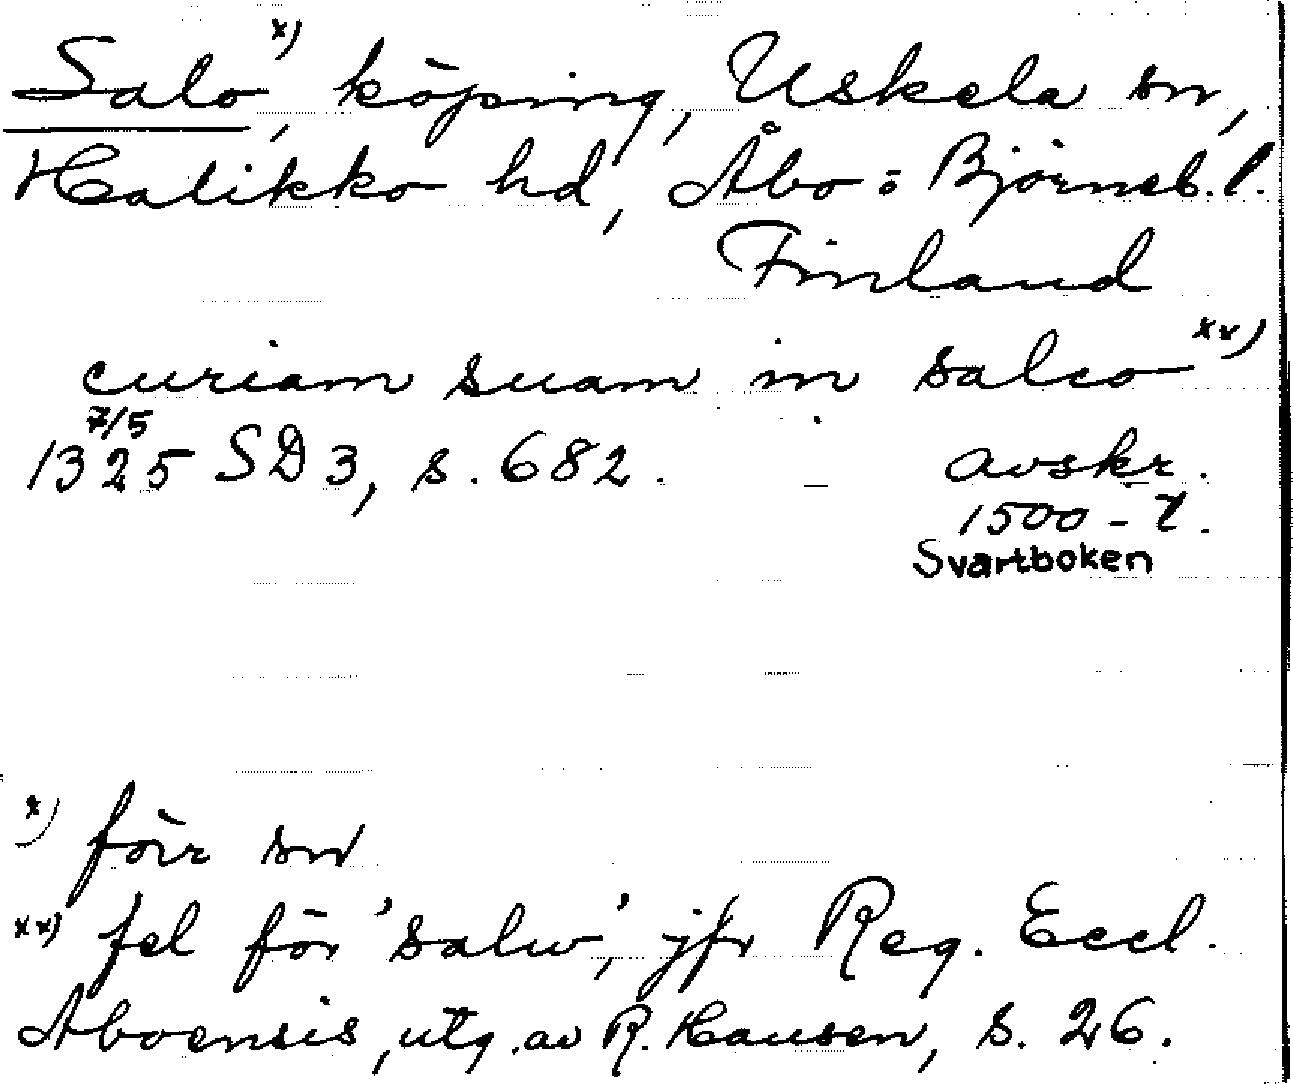 Salo x), köping, Uskela sn,
Halikko hd, Åbo o Björneb. l.
Finland
curiam suam in salco xx)
7/5
1325 SD 3, s. 682. avskr.
1500-t.
Svartboken
x) förr sn
xx) fel för 'salw', jfr Reg. Eccl.
Aboensis, utg. av R. Hausen, s. 26.